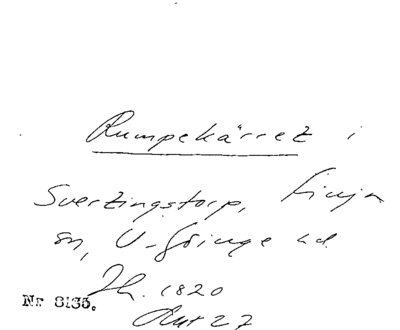 Rumpekärret i
Sverzingstorp, Finja
sn, V-Göinge hd.
Jh. 1820
Rut 27
Nr 8135.